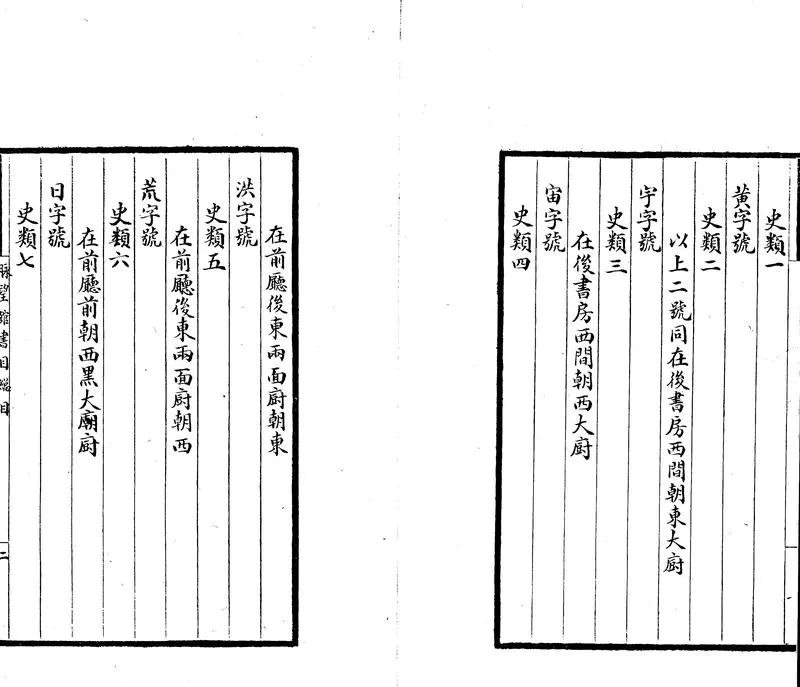 史類一
黃字號
史類二
以上二號同在後書房西間朝東大厨
宇字號
史類三
在後書房西間朝西大厨
宙字號
史類四
在前廳後東兩面厨朝東
洪字號
史類五
在前廳後東兩面厨朝西
荒字號
史類六
在前廳前朝西黑大廟厨
日字號
史類七
脉望館書目總目
二